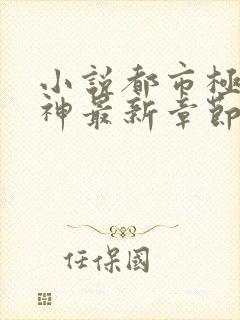 小說都市極
神最新章節
任保國